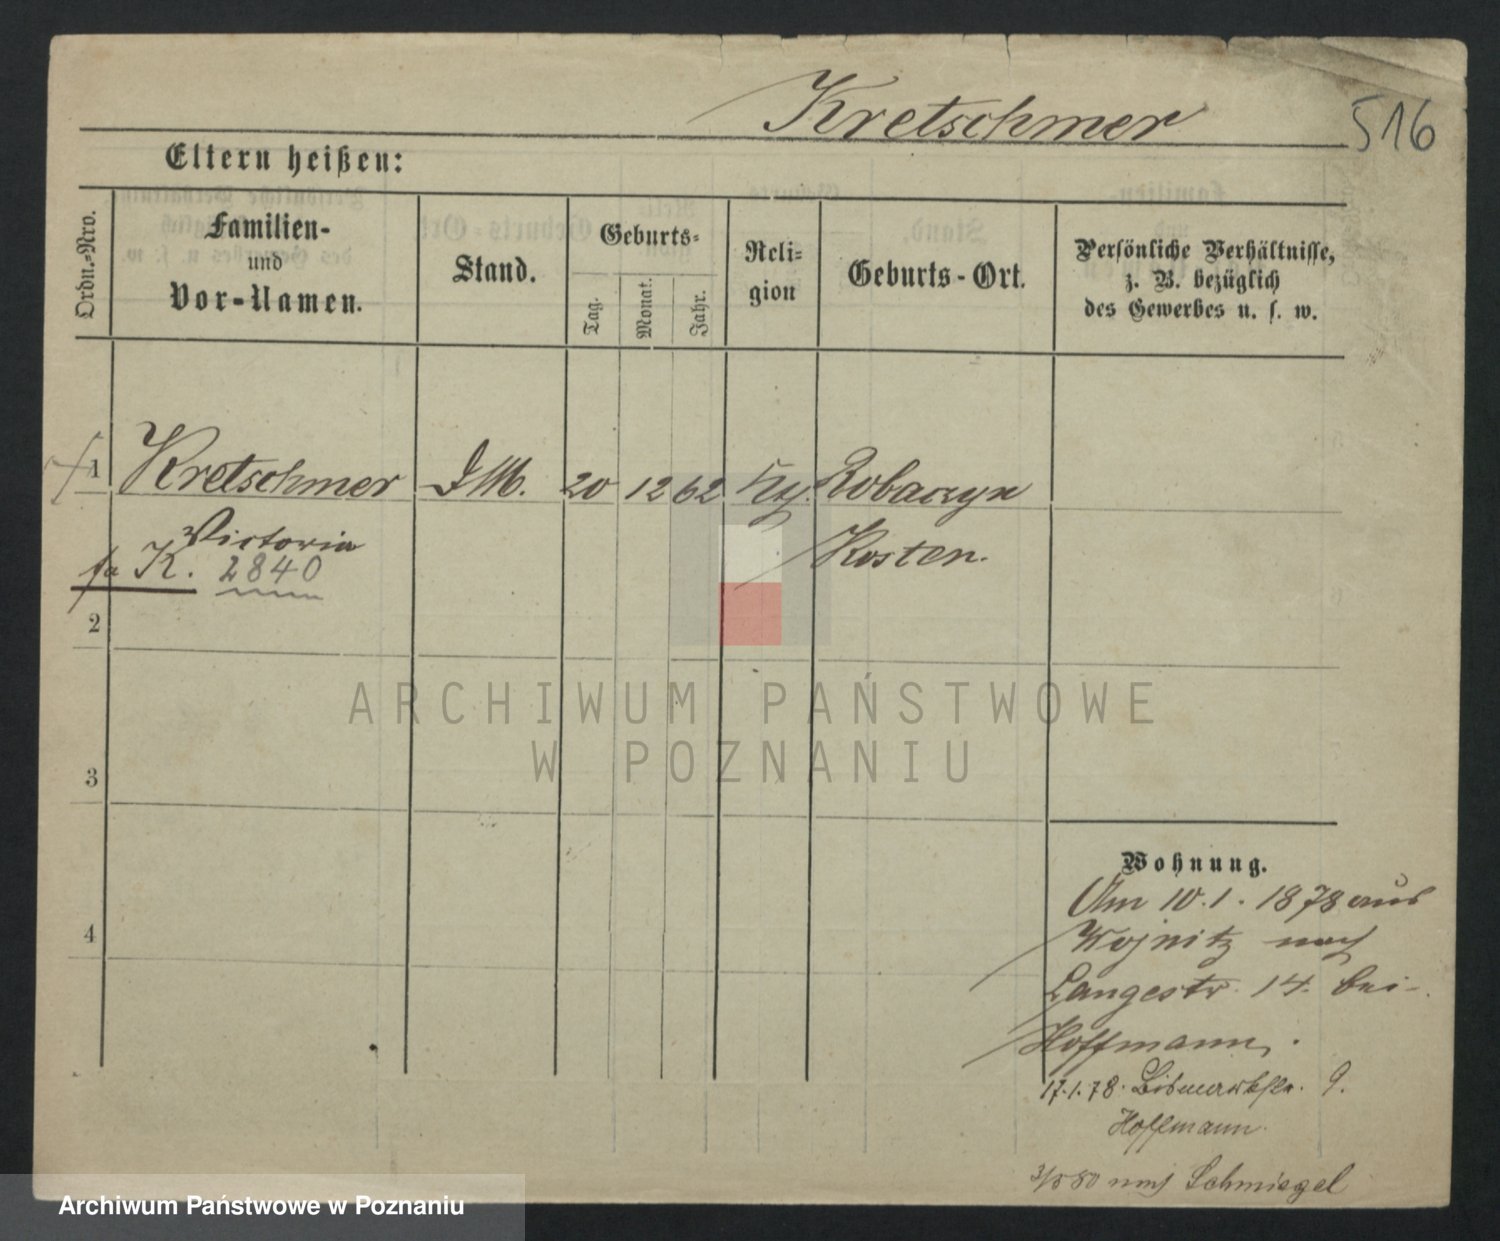 Kretschmer
516
Eltern heißen:
Ordn.-Nro.
Familien-
und
Vor-Namen.
Stand.
Geburts-
Tag.
Monat.
Jahr.
Reli-
gion
Geburts-Ort.
Persönliche Verhältnisse,
z. B. bezüglich
des Gewerbes u. s. w.
1 Kretschmer D M. 20 12 62 Robaczyn
Victoria Kosten.
K. 2840
2
3
4
ARCHIWUM PAŃSTWOWE
W POZNANIU
Wohnung.
Am 10.1.1878 aus
Wojnitz nach
Langestr. 14. bei
Hoffmann.
17.1.78. Bismarckstr. 9.
Hoffmann.
80 nach Schmiegel
Archiwum Państwowe w Poznaniu